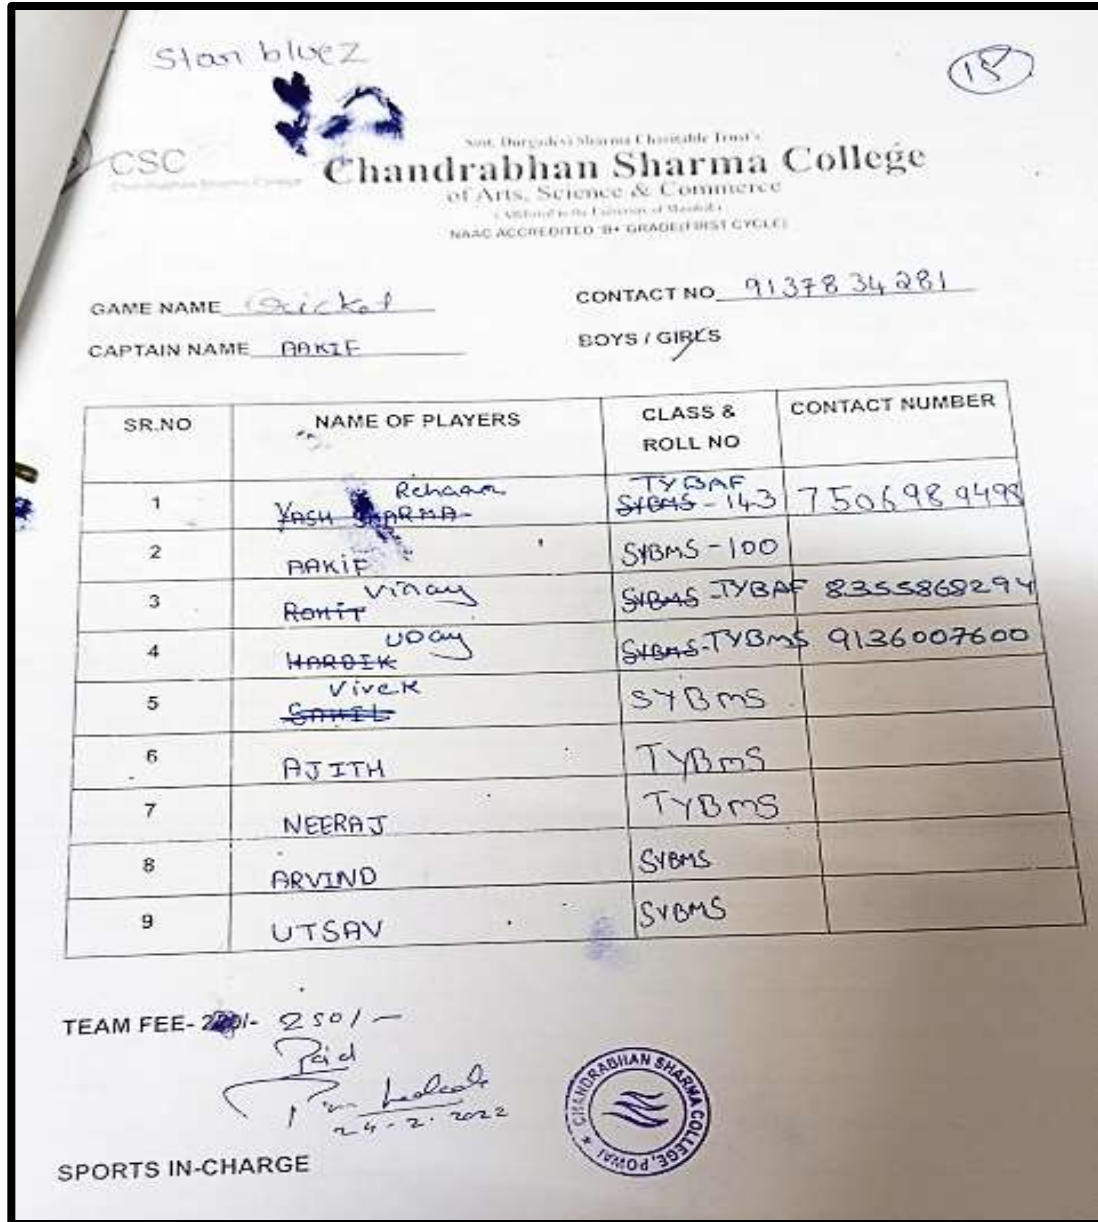 Stan bluez
15
CSC
Smt. Durgadevi Sharma Charitable Trust's
Chandrabhan Sharma College
of Arts, Science & Commerce
( Affiliated to the University of Mumbai )
NAAC ACCREDITED 'B+' GRADE(FIRST CYCLE)
GAME NAME Cricket CONTACT NO 91378 34 281
CAPTAIN NAME AAKIF BOYS / GIRLS
SR.NO NAME OF PLAYERS CLASS & ROLL NO CONTACT NUMBER
1 YASH SHARMA Rehaan SYBMS TYBAF - 143 7506989498
2 AAKIF SYBMS - 100
3 ROHIT Vinay SYBMS - TYBAF 8355868294
4 HARDIK UDay SYBMS - TYBMS 9136007600
5 SAHIL Vivek SYBMS
6 AJITH TYBMS
7 NEERAJ TYBMS
8 ARVIND SYBMS
9 UTSAV SYBMS
TEAM FEE- 250/-
Paid
24-2-2022
CHANDRABHAN SHARMA COLLEGE, POWAI
SPORTS IN-CHARGE